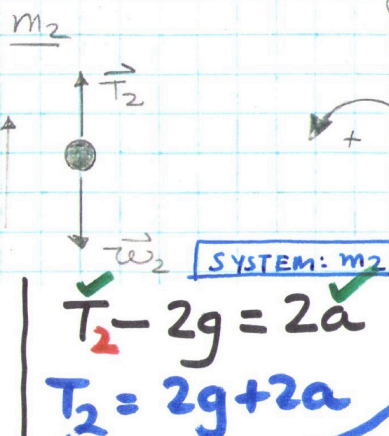 m₂
T⃗₂
+
w⃗₂
SYSTEM: m₂
T₂ - 2g = 2a
T₂ = 2g+2a